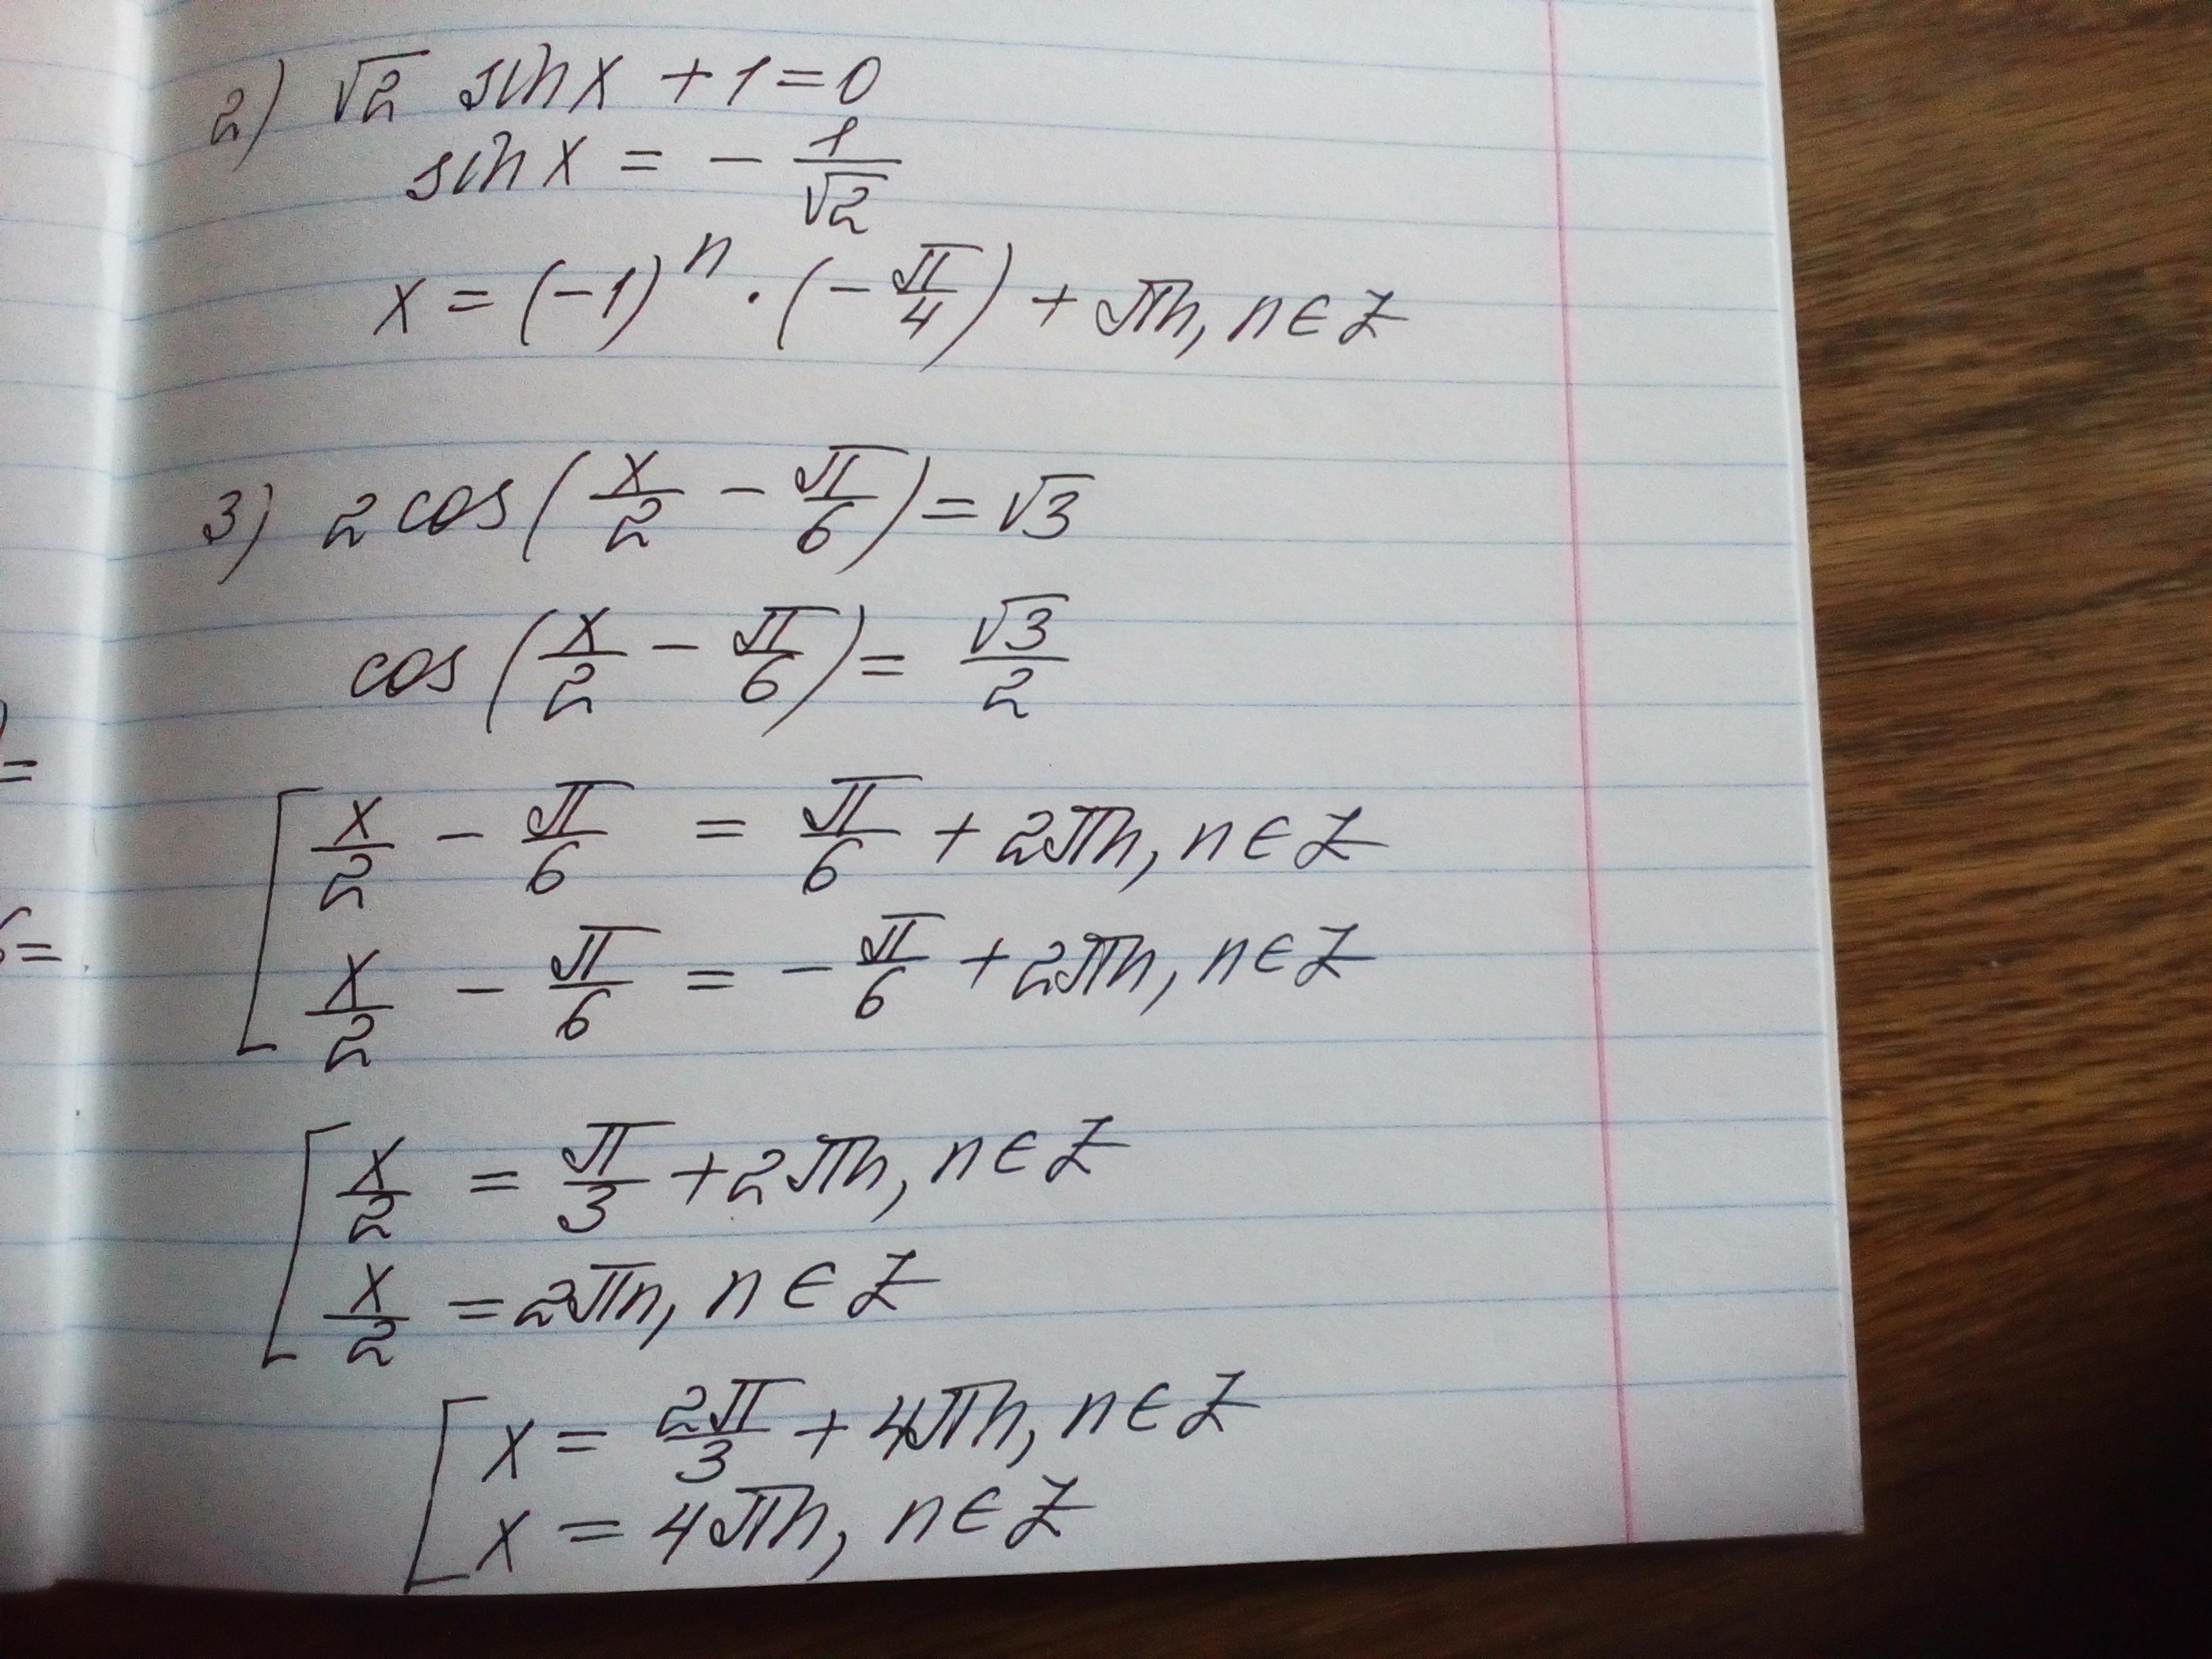 2) √2 sin x + 1 = 0
sin x = - 1/√2
x = (-1)^n · (- π/4) + πn, n ∈ Z
3) 2 cos (x/2 - π/6) = √3
cos (x/2 - π/6) = √3/2
[ x/2 - π/6 = π/6 + 2πn, n ∈ Z
x/2 - π/6 = - π/6 + 2πn, n ∈ Z
[ x/2 = π/3 + 2πn, n ∈ Z
x/2 = 2πn, n ∈ Z
[ x = 2π/3 + 4πn, n ∈ Z
x = 4πn, n ∈ Z